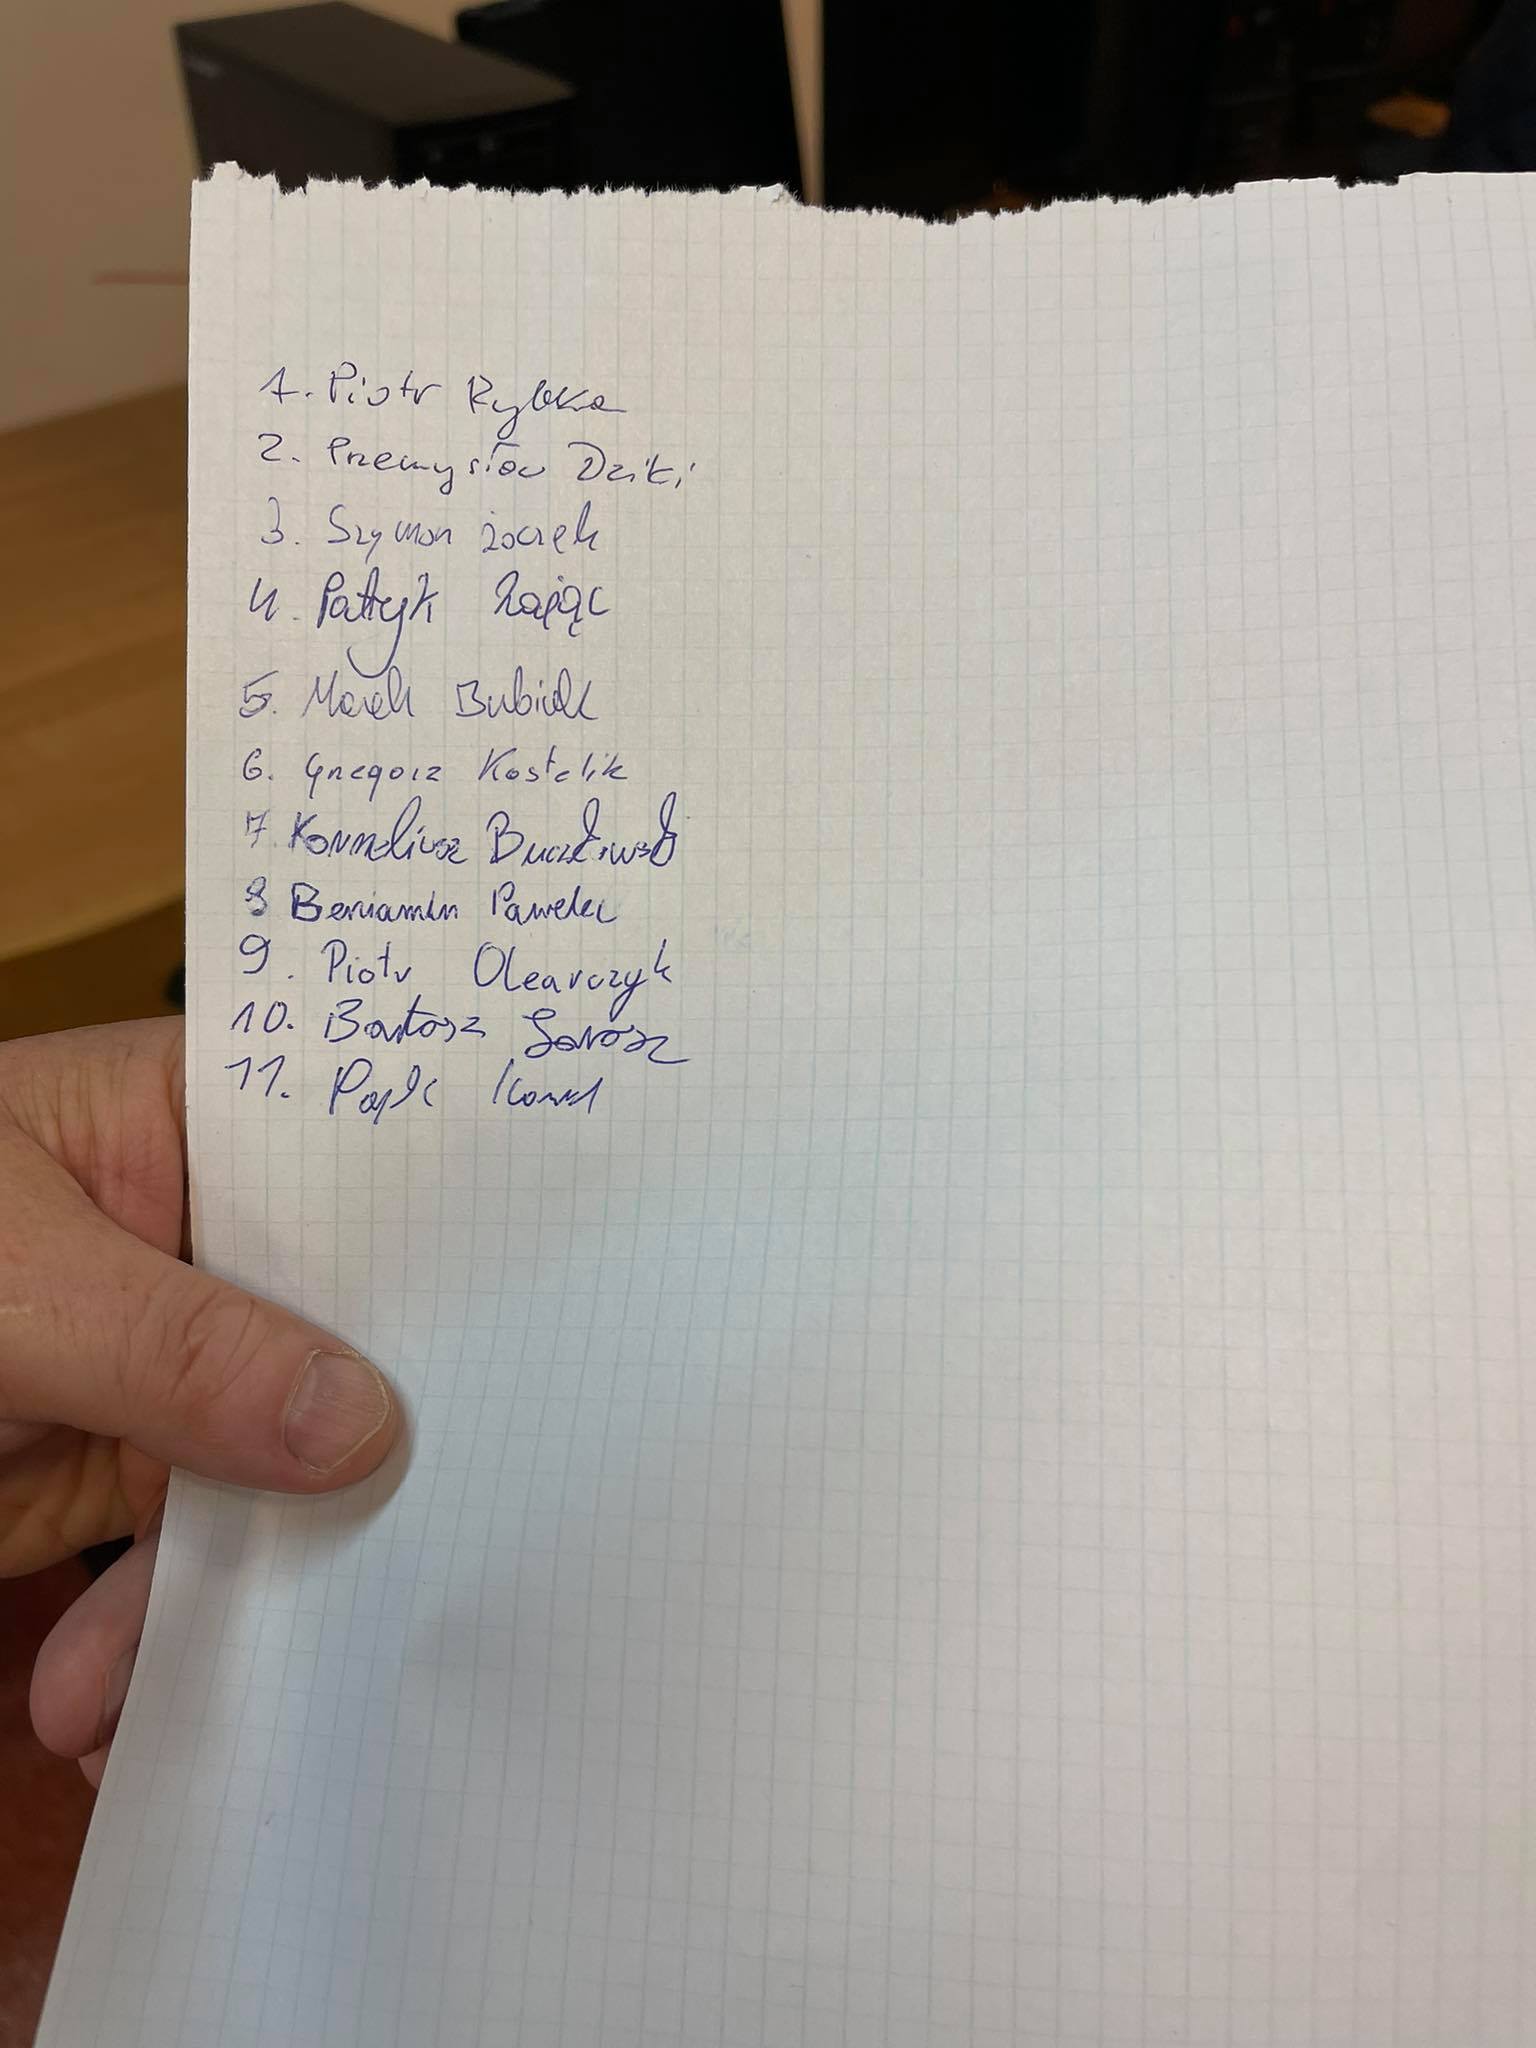 1. Piotr Rybka
2. Przemysław Dziki
3. Szymon Żaczek
4. Patryk Zając
5. Marek Bubiak
6. Grzegorz Kostelik
7. Korneliusz
8 Beniamin Pawelec
9. Piotr Olearczyk
10. Bartosz Sarosz
11. Kamil